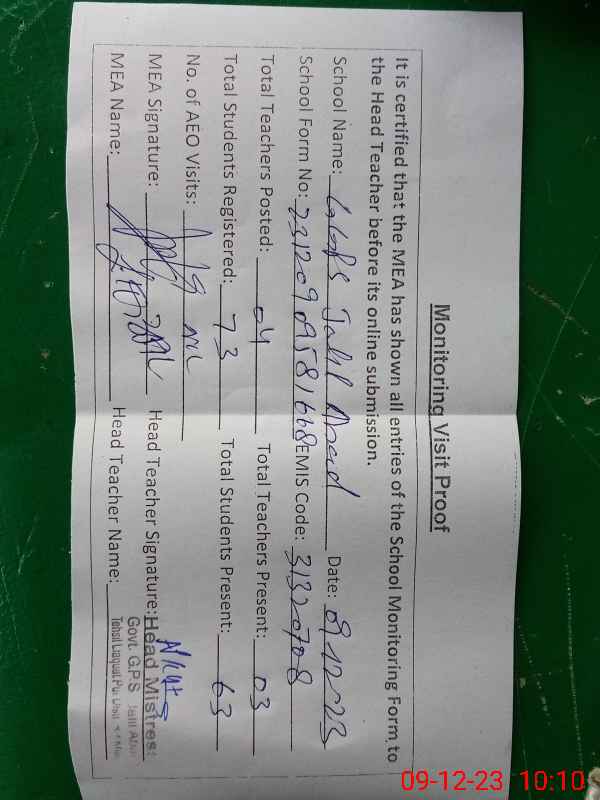 Monitoring Visit Proof
It is certified that the MEA has shown all entries of the School Monitoring Form to
the Head Teacher before its online submission.
School Name: GGPS Jalil Abad Date: 09.12.23
School Form No: EMIS Code: 31320708
Total Teachers Posted: 04 Total Teachers Present: 03
Total Students Registered: 73 Total Students Present: 63
No. of AEO Visits: NIL
MEA Signature: Head Teacher Signature:
Head Mistress
MEA Name: Head Teacher Name:
Govt. G.P.S
Tehsil Liaquat Pur
09-12-23 10:10